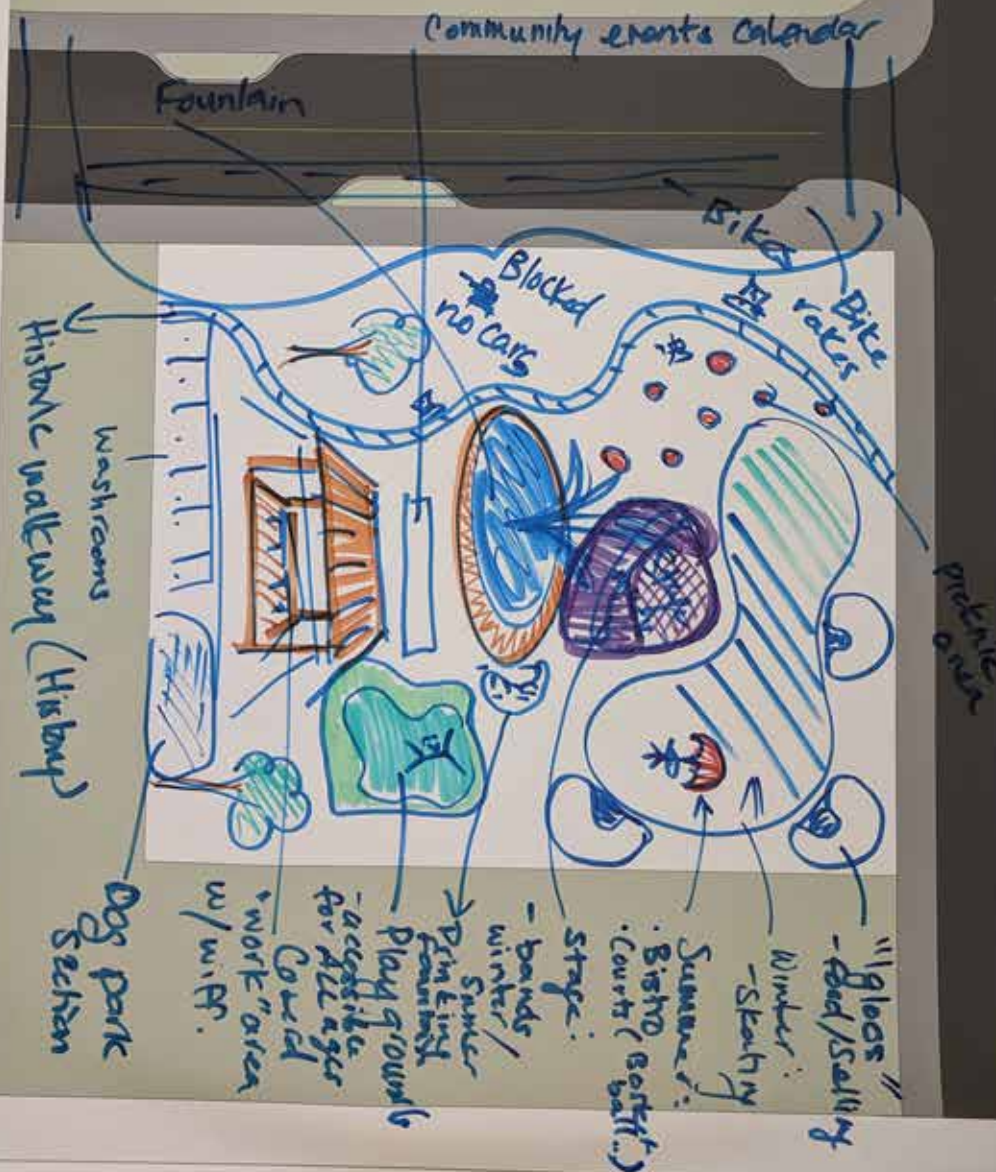 Community events Calendar
Fountain
Bikes
Bike
rakes
Blocked
no cars
picknic
area
Historic walkway (History)
washrooms
"Igloos"
- food/selling
Winter:
- Skating
Summer:
. Bistro
. Courts (Basket
ball...)
Stage:
- bands
winter/
Sumer
Drinking
fountain
Playground
- accessible
for ALL ages
Coverd
"work" area
w/wiff.
Dog park
Section